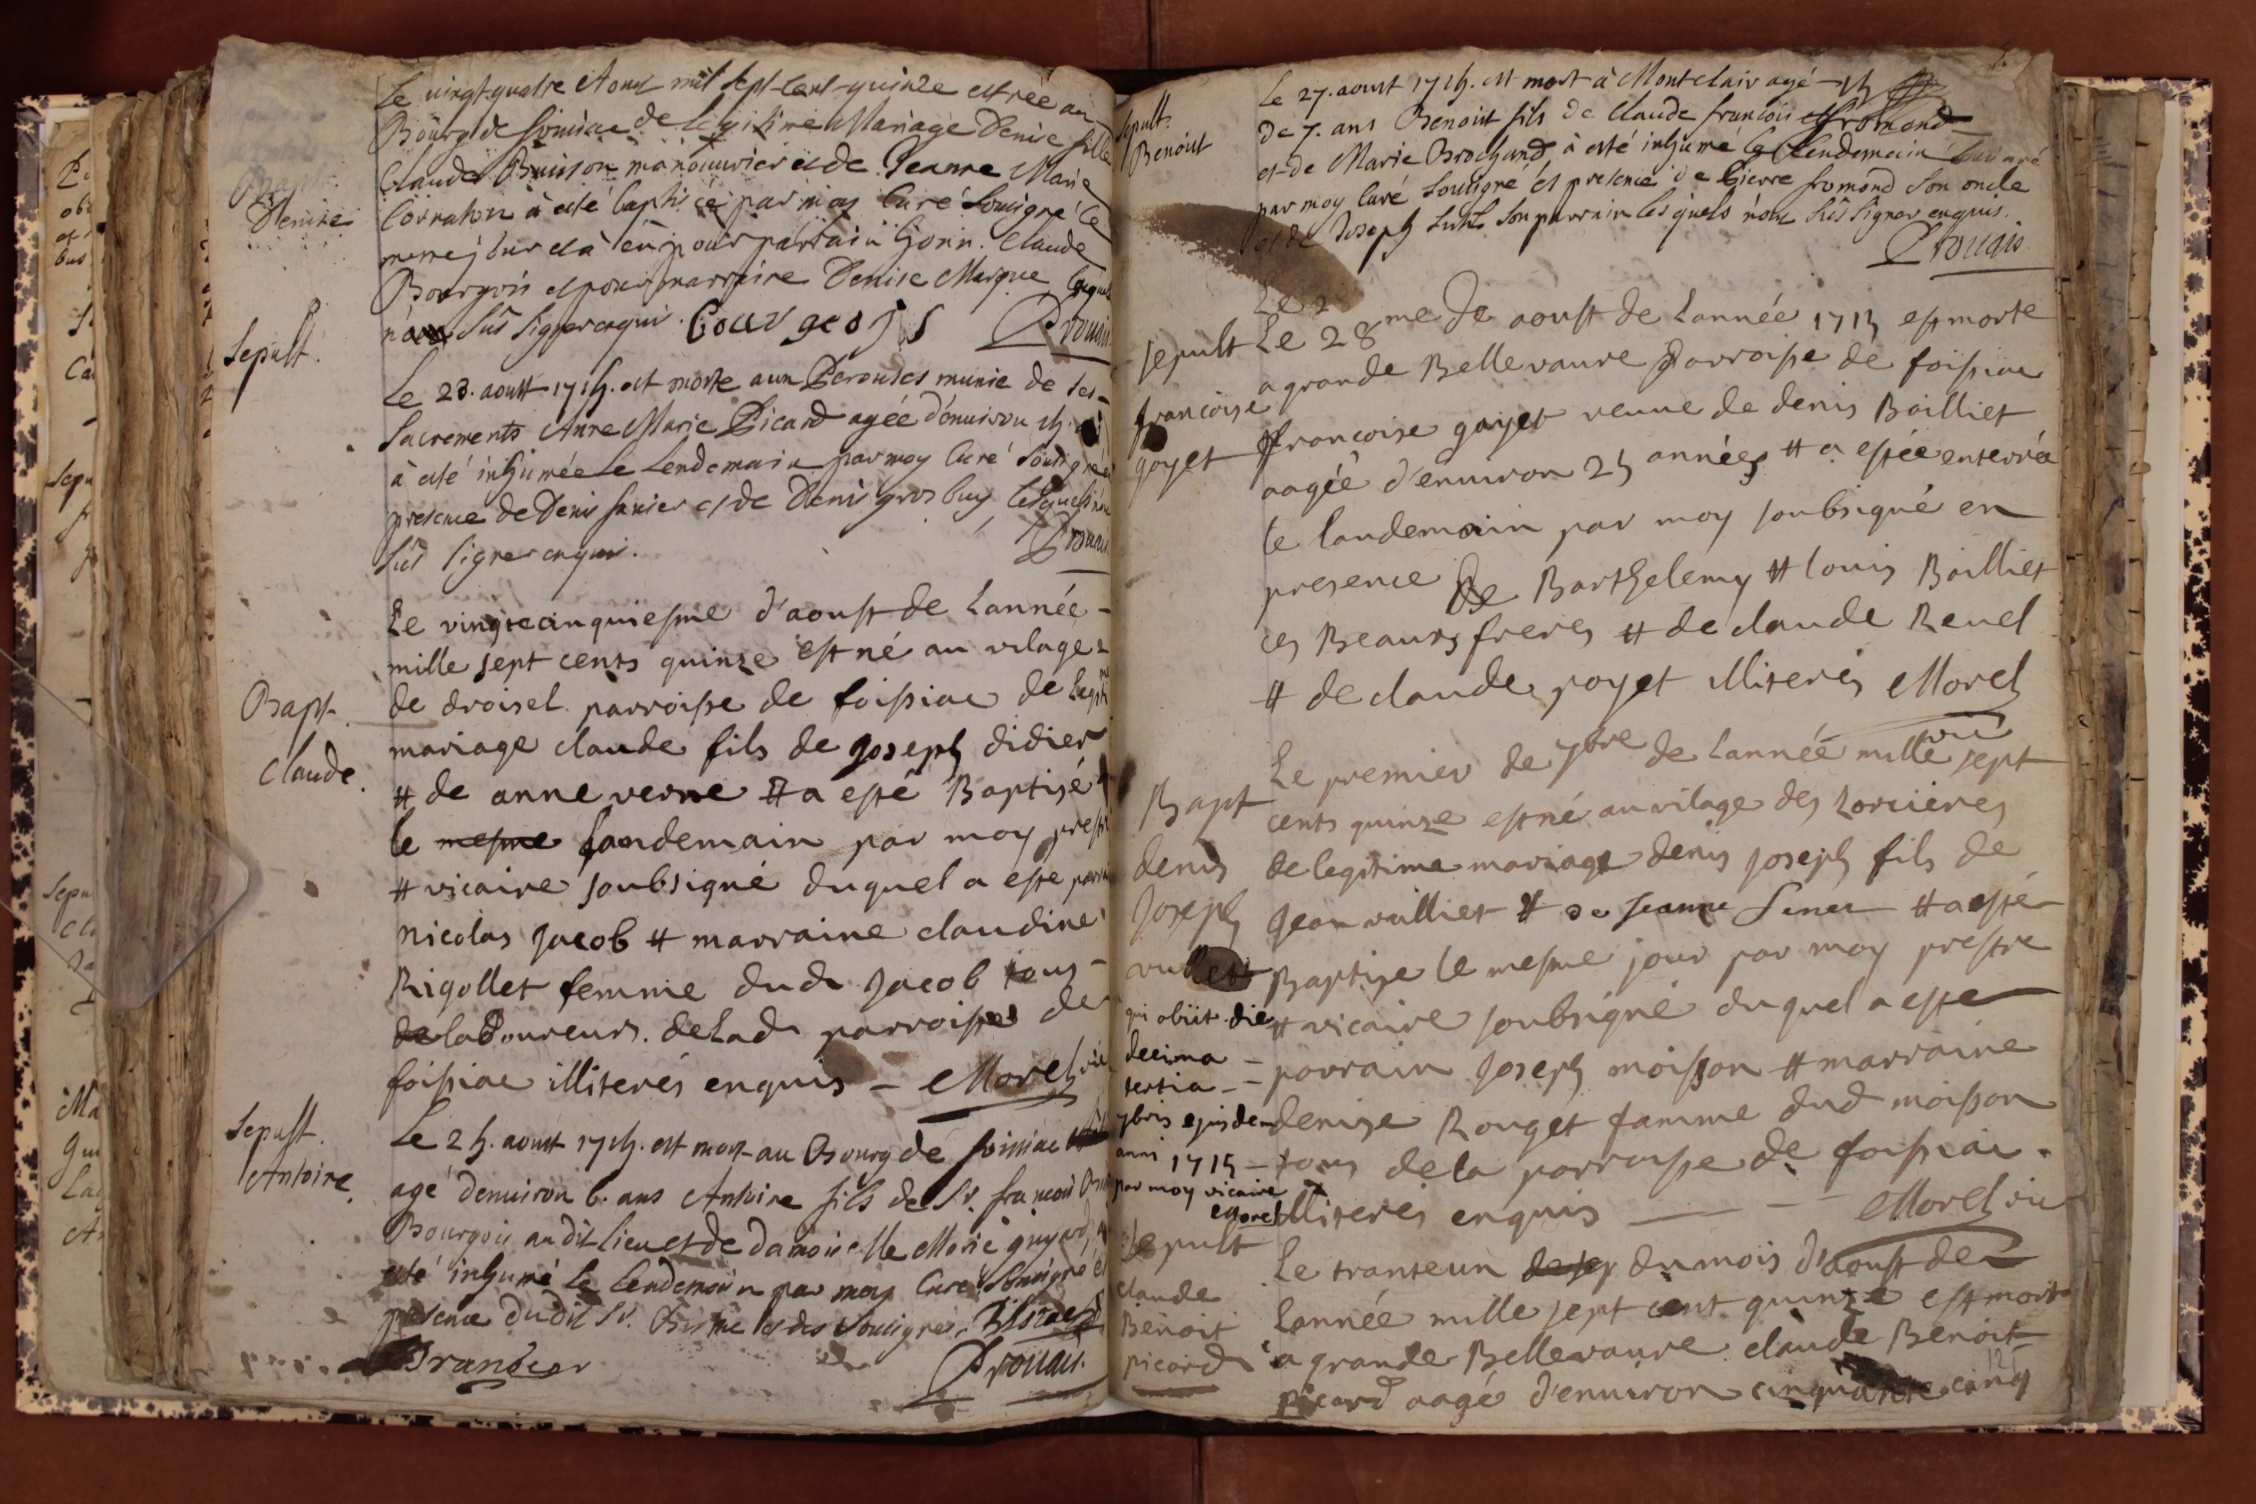 Le vingt quatre Aoust mil sept cent quinze est née au
Bourg de foissiac de legitime Mariage Denise fille
Claude Buisson manouvrier et de Jeanne Marie
à esté baptisée par moy Curé soussigné le
meme jour et à eu pour parrain Claude
Bourgois et pour marraine Denise Marque
sus signer enquis. bourgeojs Drouais
Denise
Sepult.
Le 23. aoust 1715. est morte aux Perouses munie de ses
Sacrements Anne Marie Picard agée d'enuiron 15.
à esté inhumée le Lendemain par moy Curé soussigné
presence de Denis et de Denis grosbuy lesquels
sus signer enquis. Drouais
Bapt.
Claude.
Le vingtecinquiesme d'aoust de Lannée
mille sept cents quinze est né au vilage
de droisel parroisse de foissiac de
mariage claude fils de Joseph didier
# de anne verne # a esté Baptisé
le mesme landemain par moy prestre
# vicaire soubsigné duquel a este parrain
Nicolas Jacob # marraine claudine
Rigollet femme dud Jacob tous
de laboureurs. de lad parroisse de
foissiac illiterés enquis – Morel vic
Sepult.
Antoine.
Le 25. aoust 1715. est mort au Bourg de foissiac
agé denuiron 6. ans Antoine fils de Sr. francois
Bourgois audit lieu et de damoiselle Marie guyard
esté inhumé le lendemain par moy Curé soussigné
presence dudit Sr. et des soussignés.
Drouais.
Sepult.
Benoist
Le 27. aoust 1715. est mort à Montclair agé
de 7. ans Benoist fils de Claude francois fromond
et de Marie Brochand, à esté inhumé le Lendemain
par moy Curé soussigné et presence de Pierre fromond son oncle
et de Joseph son parrain lesquels n'ont sus signer enquis.
Drouais
Le 2
sepult
francoise
goyet
Le 28me de aoust de Lannée 1715 est morte
a grande Bellevaure parroisse de foissiac
francoise goyet veuue de denis Boilliet
aagée d'enuiron 25 années # a estée enterrée
le landemain par moy soubsigné en
presence de Barthelemy # louis Boilliet
ces Beaurs freres # de claude Reuel
# de claude poyet illiterés Morel
vic
Bapt
denis
Joseph
vulliet
qui obiit die
decima
tertia
7bris ejusdem
anni 1715
par moy vicaire
Morel
Le premier de 7bre de Lannée mille sept
cents quinze est né au vilage des Lorcieres
de legitime mariage denis Joseph fils de
Jean vulliet # de Jeanne # a esté
Baptise le mesme jour par moy prestre
# vicaire soubsigné duquel a esté
parrain Joseph moisson # marraine
denise Rouget famme dud moisson
tous de la parroisse de foissiac.
illiterés enquis — Morel vic
Sepult
claude
Benoit
picard
Le tranteun du mois d'aoust de
Lannée mille sept cent quinze est mort
a grande Bellevaure claude Benoit
picard aagé d'enuiron cinquante cinq